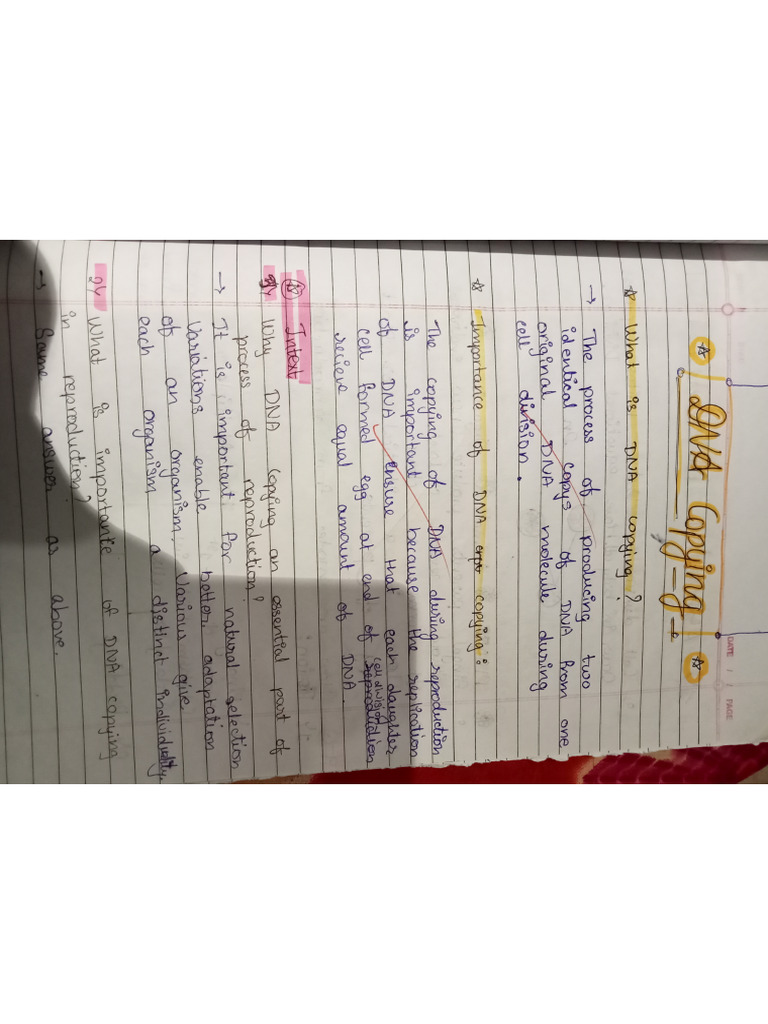 DATE / / PAGE
☆ DNA Copying ☆
☆ What is DNA copying?
→ The process of producing two
identical copys of DNA from one
original DNA molecule during
cell division.
☆ Importance of DNA copying:
The copying of DNA during reproduction
is important because the replication
of DNA ensure that each daughter
cell formed egg at end of cell division reproduction
recieve equal amount of DNA.
☆ Intext
1) Why DNA copying an essential part of
process of reproduction?
→ It is important for natural selection
Variations enable better adaptation
of an organism, Various give
each organism a distinct individuality.
2) What is importante of DNA copying
in reproduction?
→ Same answer as above.